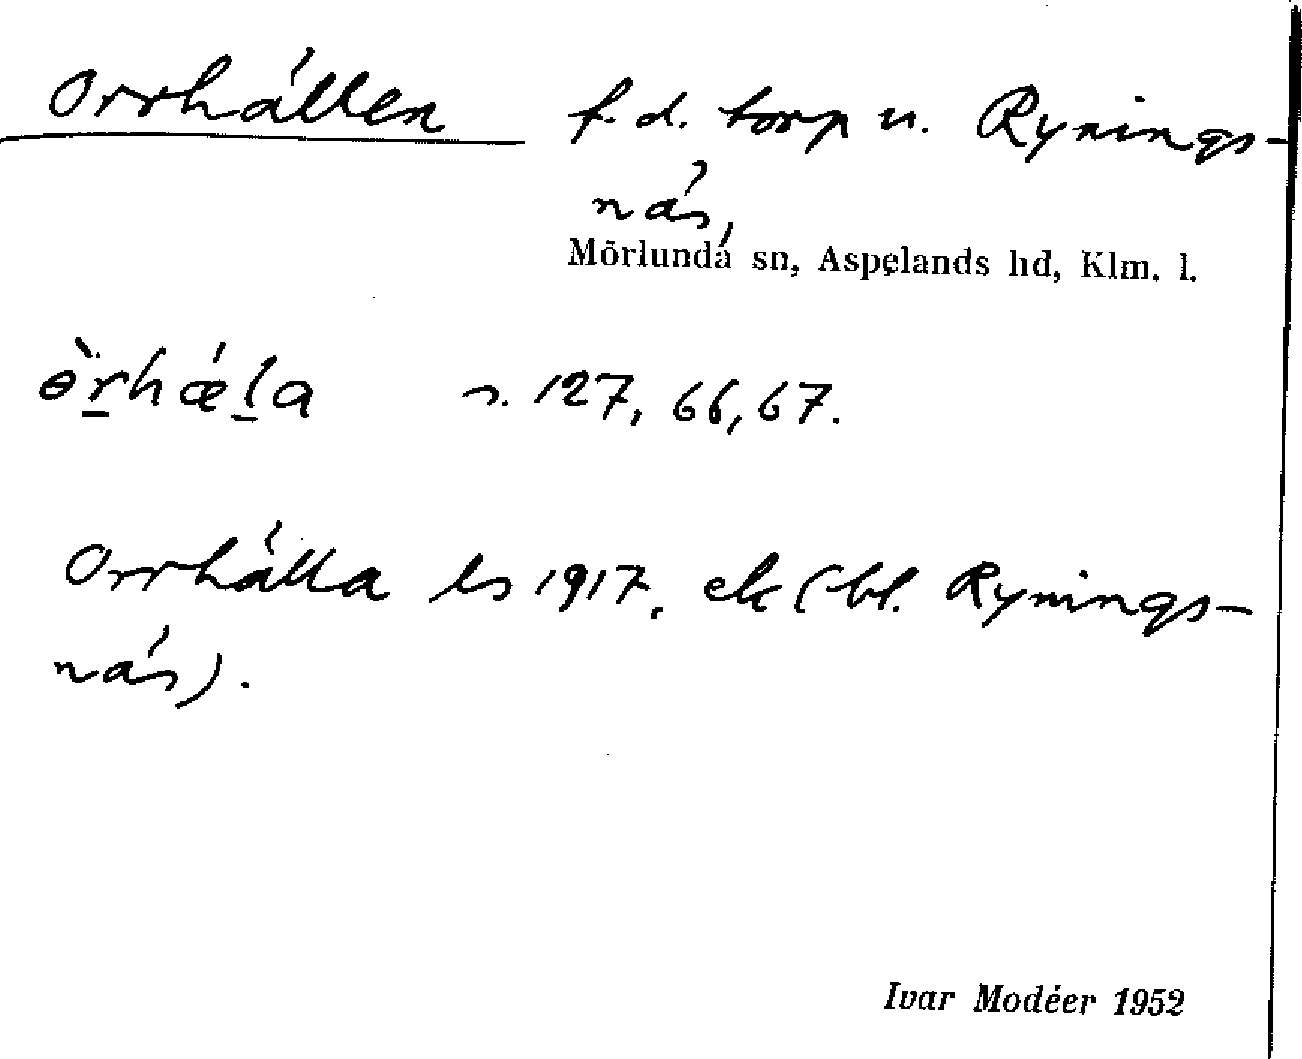 Orrhällen f.d. torp u. Rynings-
näs,
Mörlunda sn, Aspelands hd, Klm. l.
s. 127, 66, 67.
Orrhälla ls 1917, ek (bl. Rynings-
näs).
Ivar Modéer 1952